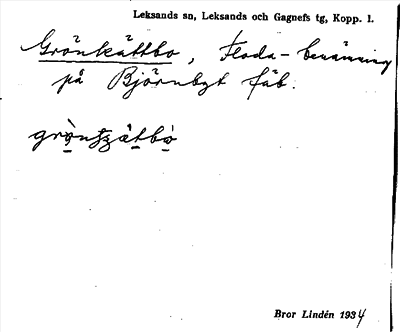 Leksands sn, Leksands och Gagnefs tg, Kopp. l.
Grönkättbo, Floda-benämning
på Björnbyt fäb.
Bror Lindén 1934